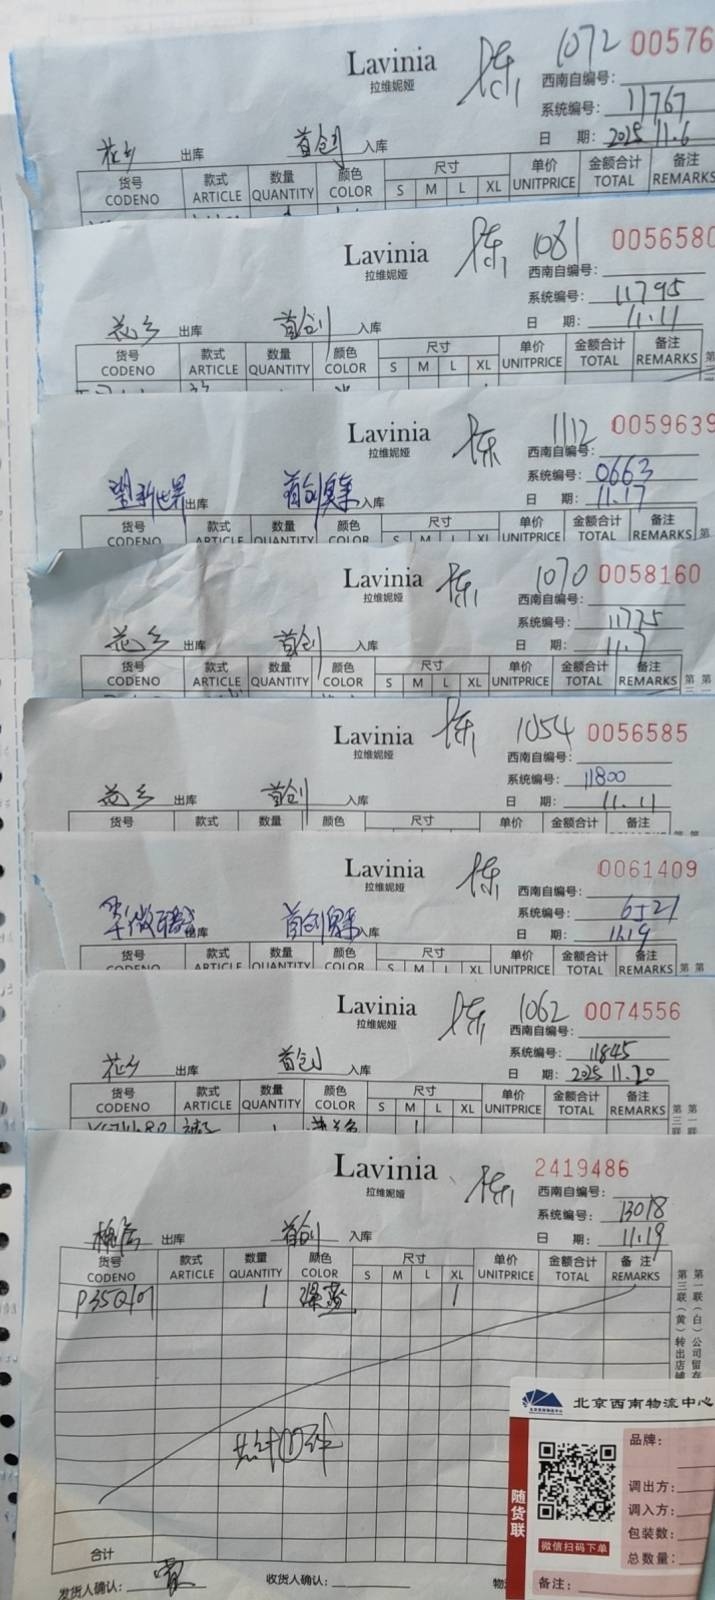 Lavinia 1072 00576
拉维妮娅
西南自编号:
系统编号: 11767
花乡 出库 首创 入库 日 期: 2025 11.6
货号 款式 数量 颜色 尺寸 单价 金额合计 备注
CODENO ARTICLE QUANTITY COLOR S M L XL UNITPRICE TOTAL REMARKS
Lavinia 1081 0056580
拉维妮娅
西南自编号:
系统编号: 11795
花乡 出库 首创 入库 日 期: 11.11
货号 款式 数量 颜色 尺寸 单价 金额合计 备注
CODENO ARTICLE QUANTITY COLOR S M L XL UNITPRICE TOTAL REMARKS 第
Lavinia 陈 1112 0059639
拉维妮娅
西南自编号:
系统编号: 0663
望新世界 出库 首创奥莱 入库 日 期: 11.17
货号 款式 数量 颜色 尺寸 单价 金额合计 备注
CODENO ARTICLE QUANTITY COLOR S M L XL UNITPRICE TOTAL REMARKS 第
Lavinia 1070 0058160
拉维妮娅
西南自编号:
系统编号: 11775
花乡 出库 首创 入库 日 期: 11.7
货号 款式 数量 颜色 尺寸 单价 金额合计 备注
CODENO ARTICLE QUANTITY COLOR S M L XL UNITPRICE TOTAL REMARKS 第 第
Lavinia 1054 0056585
拉维妮娅
西南自编号:
系统编号: 11800
花乡 出库 首创 入库 日 期: 11.11
货号 款式 数量 颜色 尺寸 单价 金额合计 备注
Lavinia 陈 0061409
拉维妮娅
西南自编号:
系统编号: 6521
出库 首创奥莱 入库 日 期: 11.19
货号 款式 数量 颜色 尺寸 单价 金额合计 备注
CODENO ARTICLE QUANTITY COLOR S M L XL UNITPRICE TOTAL REMARKS 第 第
Lavinia 1062 0074556
拉维妮娅
西南自编号:
系统编号: 11845
花乡 出库 首创 入库 日 期: 2025 11.20
货号 款式 数量 颜色 尺寸 单价 金额合计 备注
CODENO ARTICLE QUANTITY COLOR S M L XL UNITPRICE TOTAL REMARKS
Lavinia 2419486
拉维妮娅
西南自编号:
系统编号: 13018
出库 首创 入库 日 期: 11.19
货号 款式 数量 颜色 尺寸 单价 金额合计 备注
CODENO ARTICLE QUANTITY COLOR S M L XL UNITPRICE TOTAL REMARKS
P35Q107 1 1
第一联(白)公司留存
第三联(黄)转出店铺
共计①件
合计
发货人确认: 收货人确认: 物
北京西南物流中心
随货联
微信扫码下单
品牌:
调出方:
调入方:
包装数:
总数量:
备注: